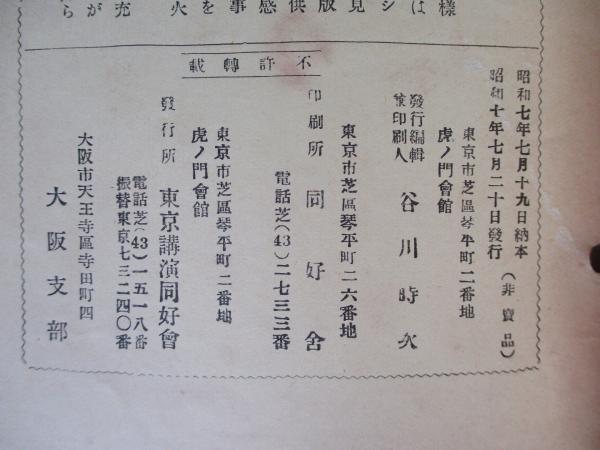 様
は
シ
見
版
供
感
事
を
火
充
が
ら
不許轉載
昭和七年七月十九日納本
昭和十年七月二十日發行
(非賣品)
東京市芝區琴平町二番地
虎ノ門會館
發行編輯
兼印刷人
谷川時次
東京市芝區琴平町二六番地
印刷所 同好舍
電話芝(43)二七三三番
東京市芝區琴平町二番地
虎ノ門會館
發行所 東京講演同好會
電話芝(43)一五一八番
振替東京七三二四〇番
大阪市天王寺區寺田町四
大阪支部